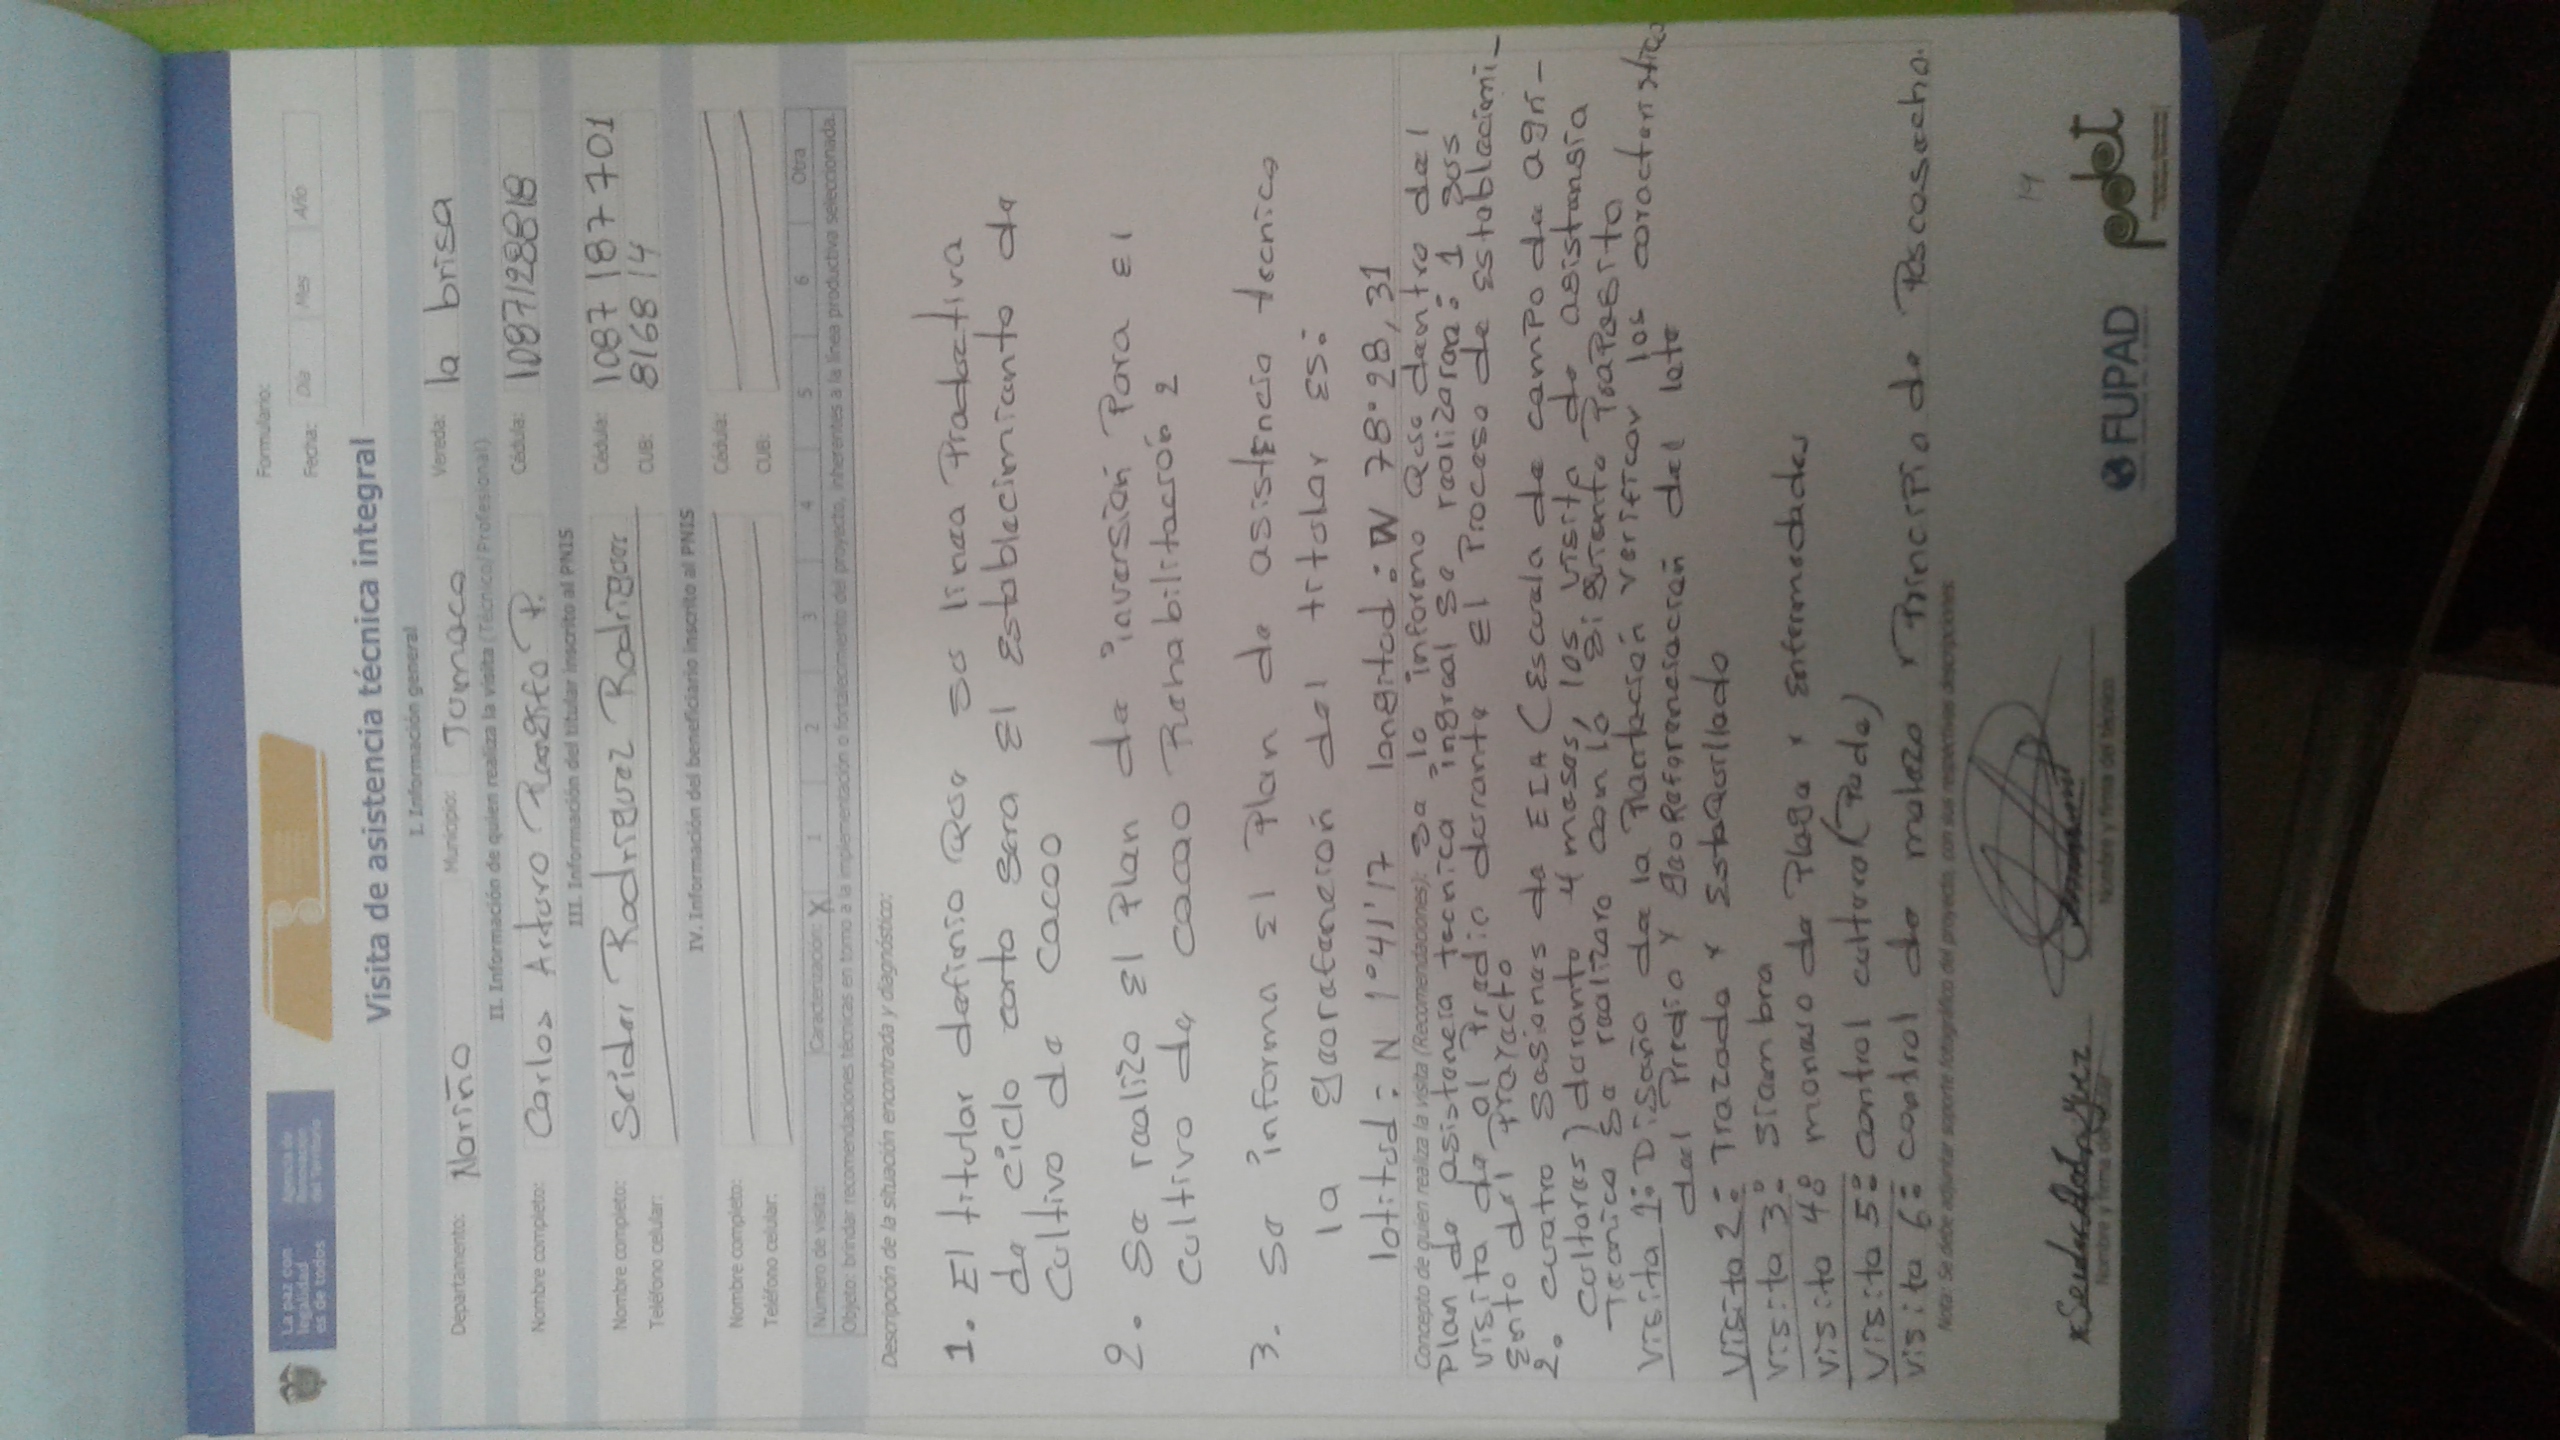 La paz con
legalidad
es de todos
Agencia de
Renovación
del Territorio
Formulario:
Fecha: Día Mes Año
Visita de asistencia técnica integral
I. Información general
Departamento: Nariño Municipio: Tumaco Vereda: la brisa
II. Información de quien realiza la visita (Técnico/ Profesional)
Nombre completo: Carlos Arturo P. Cédula: 1087128818
III. Información del titular inscrito al PNIS
Nombre completo: Seider Rodriguez Rodriguez Cédula: 1087 187 701
Teléfono celular: CUB: 8168 14
IV. Información del beneficiario inscrito al PNIS
Nombre completo: Cédula:
Teléfono celular: CUB:
Número de visita: Caracterización: X 1 2 3 4 5 6 Otra
Objeto: brindar recomendaciones técnicas en torno a la implementación o fortalecimiento del proyecto, inherentes a la línea productiva seleccionada.
Descripción de la situación encontrada y diagnóstico:
1. El titular definio que su linea Productiva
de ciclo corto sera El Establecimiento de
Cultivo de cacao
2. Se realizo El Plan de inversión Para El
cultivo de cacao Rehabilitación 2
3. Se informa El Plan de asistencia tecnica
la georefención del titular Es:
latitud: N 1°41'17 longitud: W 78°28,31
Concepto de quien realiza la visita (Recomendaciones): se lo informo que dentro del
Plan de asistencia tecnica ingral se realizara: 1 Seis
visita de al Predio durante El Proceso de Establecimi-
Ento del Proyecto
2. cuatro Sesiones de ECA (Escuela de campo de agri-
Cultores) durante 4 meses, los visita de asistansia
Tecnica se realizara con lo siguiente Proposito
Visita 1: Diseño de la Plantación verificar los caracteristica
del Predio y georeferenciación del lote
Visita 2: Trazado y Estaquillado
Visita 3: Siembra
Visita 4: manejo de Plaga y Enfermedades
Visita 5: control cultura (Poda)
Visita 6: control de maleza y Principio de Poscosecha.
Nota: Se debe adjuntar soporte fotográfico del proyecto, con sus respectivas descripciones
x Seider Rodriguez
Nombre y firma del
Nombre y firma del técnico
19
FUPAD
pdet